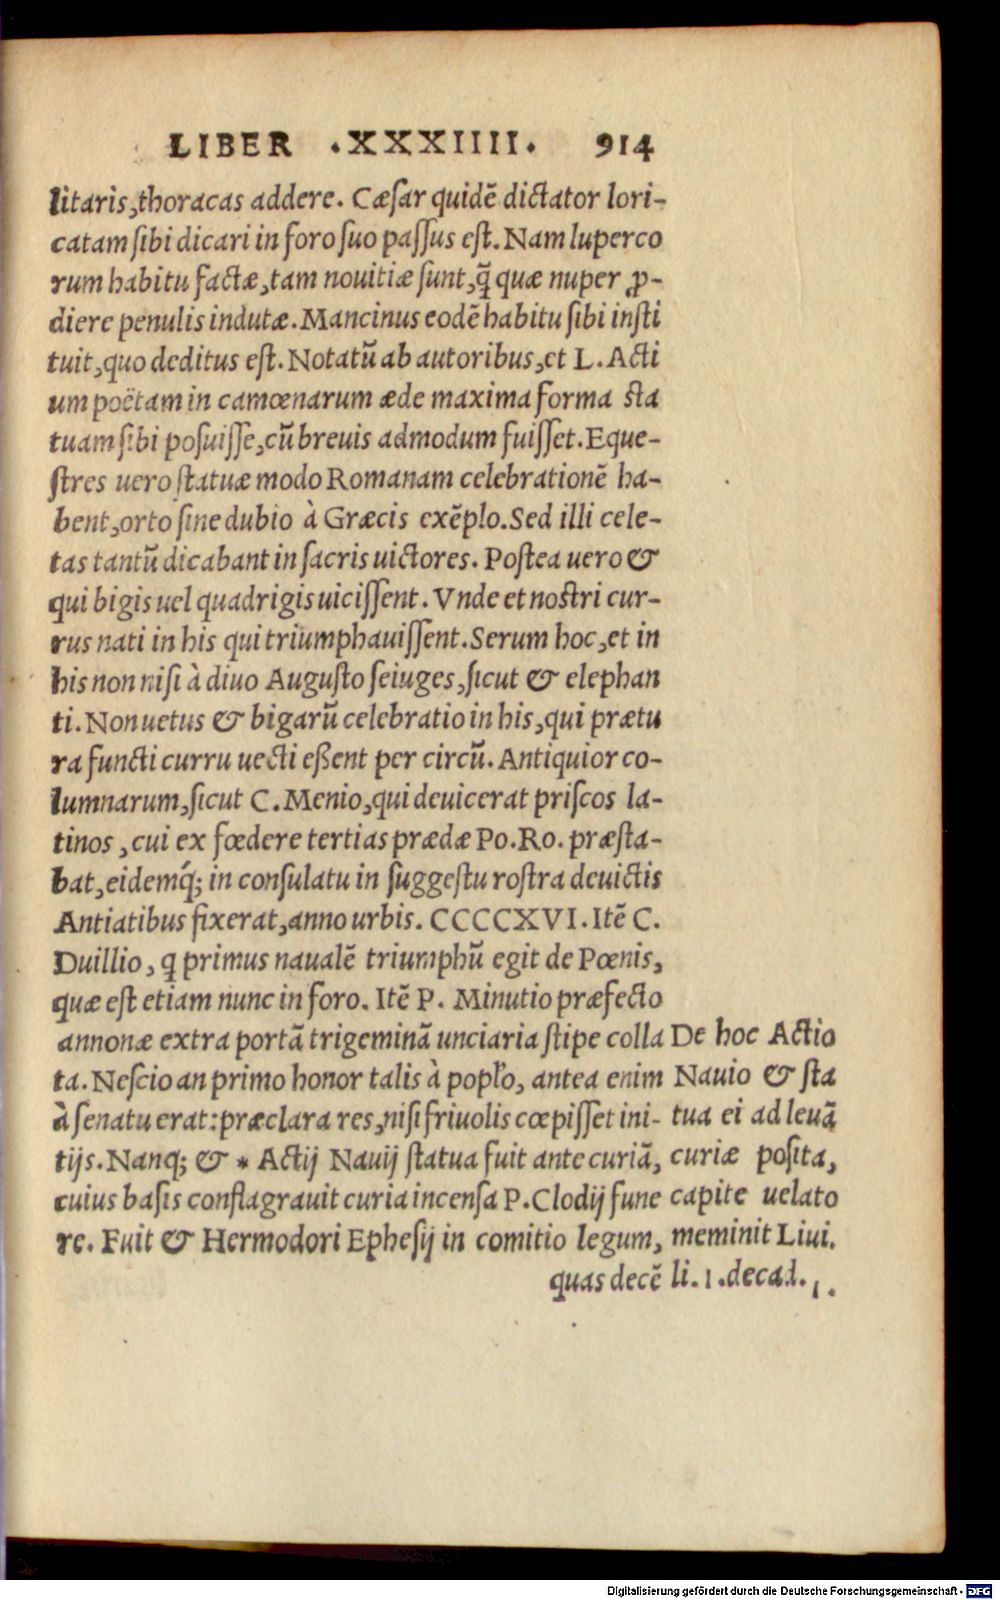 LIBER .XXXIIII. 914
litaris,thoracas addere. Cæſar quidẽ dictator lori-
catam ſibi dicari in foro ſuo paſſus eſt. Nam luperco
rum habitu factæ,tam nouitiæ ſunt,q̃ quæ nuper ꝓ-
diere penulis indutæ. Mancinus eodẽ habitu ſibi inſti
tuit,quo deditus eſt. Notatũ ab autoribus,et L. Acti
um poëtam in camœnarum æde maxima forma ſta
tuam ſibi poſuiſſe,cũ breuis admodum fuiſſet. Eque-
ſtres uero ſtatuæ modo Romanam celebrationẽ ha-
bent,orto ſine dubio à Græcis exẽplo. Sed illi cele-
tas tantũ dicabant in ſacris uictores. Poſtea uero &
qui bigis uel quadrigis uiciſſent. Vnde et noſtri cur-
rus nati in his qui triumphauiſſent. Serum hoc,et in
his non niſi à diuo Auguſto ſeiuges,ſicut & elephan
ti. Non uetus & bigarũ celebratio in his,qui prætu
ra functi curru uecti eßent per circũ. Antiquior co-
lumnarum,ſicut C. Menio,qui deuicerat priſcos la-
tinos, cui ex fœdere tertias prædæ Po. Ro. præſta-
bat,eidemq́; in conſulatu in ſuggeſtu roſtra deuictis
Antiatibus fixerat,anno urbis. CCCCXVI. Itẽ C.
Duillio, q primus naualẽ triumphũ egit de Pœnis,
quæ eſt etiam nunc in foro. Itẽ P. Minutio præfecto
annonæ extra portã trigeminã unciaria ſtipe colla
ta. Neſcio an primo honor talis à popľo, antea enim
à ſenatu erat: præclara res,niſi friuolis cœpiſſet ini-
tijs. Nanq; & * Actij Nauij ſtatua fuit ante curiã,
cuius baſis conflagrauit curia incenſa P. Clodij fune
re. Fuit & Hermodori Epheſij in comitio legum,
quas decẽ
De hoc Actio
Nauio & ſta
tua ei ad leuã
curiæ poſita,
capite uelato
meminit Liui.
li. 1. decad. 1.
Digitalisierung gefördert durch die Deutsche Forschungsgemeinschaft - DFG